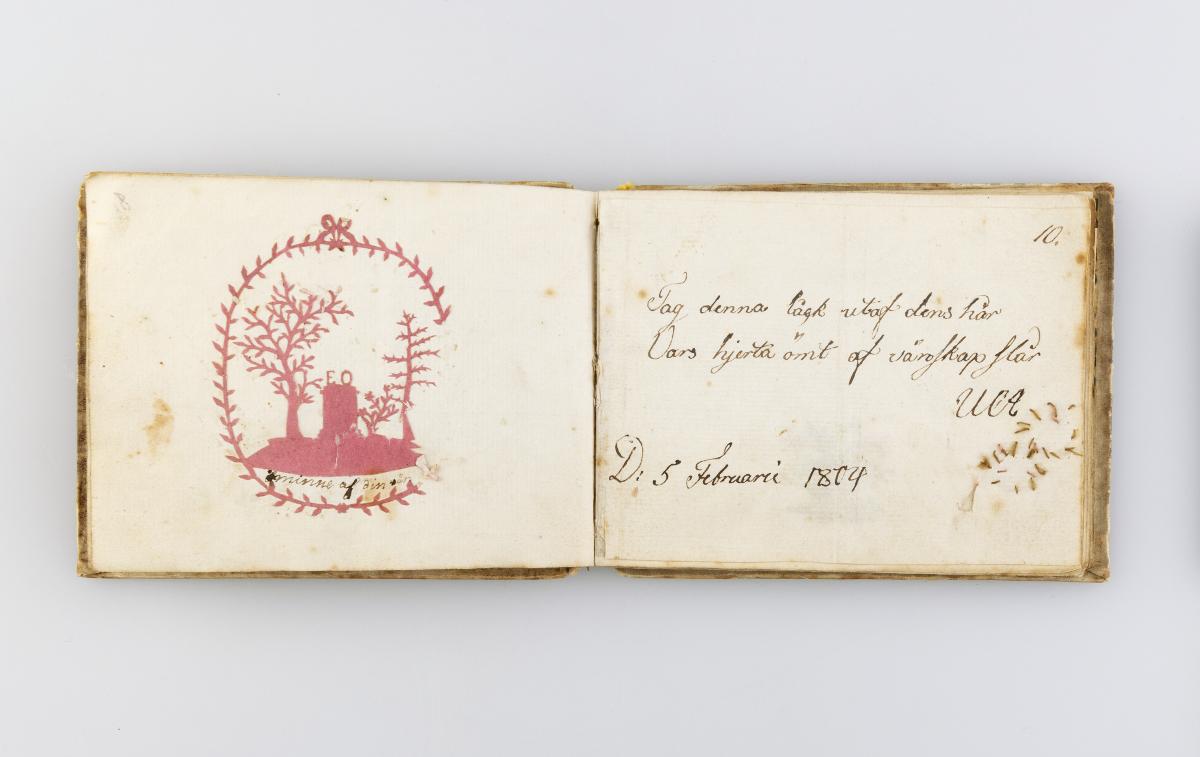 E O
minne af din
10.
Tag denna lågk utaf dens hår
Vars hjerta ömt af vänskap slår
D: 5 Februarii 1804